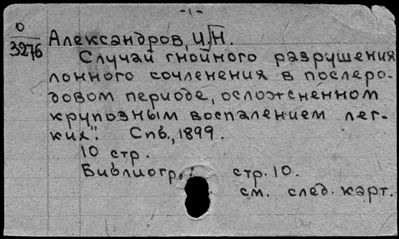 -1-
O
3276
Александров, И.Н.
Случай гнойного разрушения
лонного сочленения в послеро-
довом периоде, осложненном
крупозным воспалением лег-
ких". Спб., 1899.
10 стр.
Библиогр.: стр. 10.
см. след. карт.